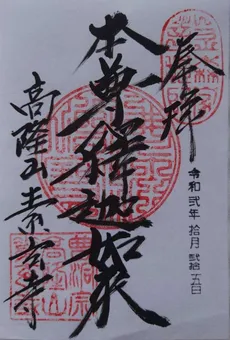 奉拝
令和弐年拾月弐拾五日
本尊釋迦如来
高隆山素玄寺